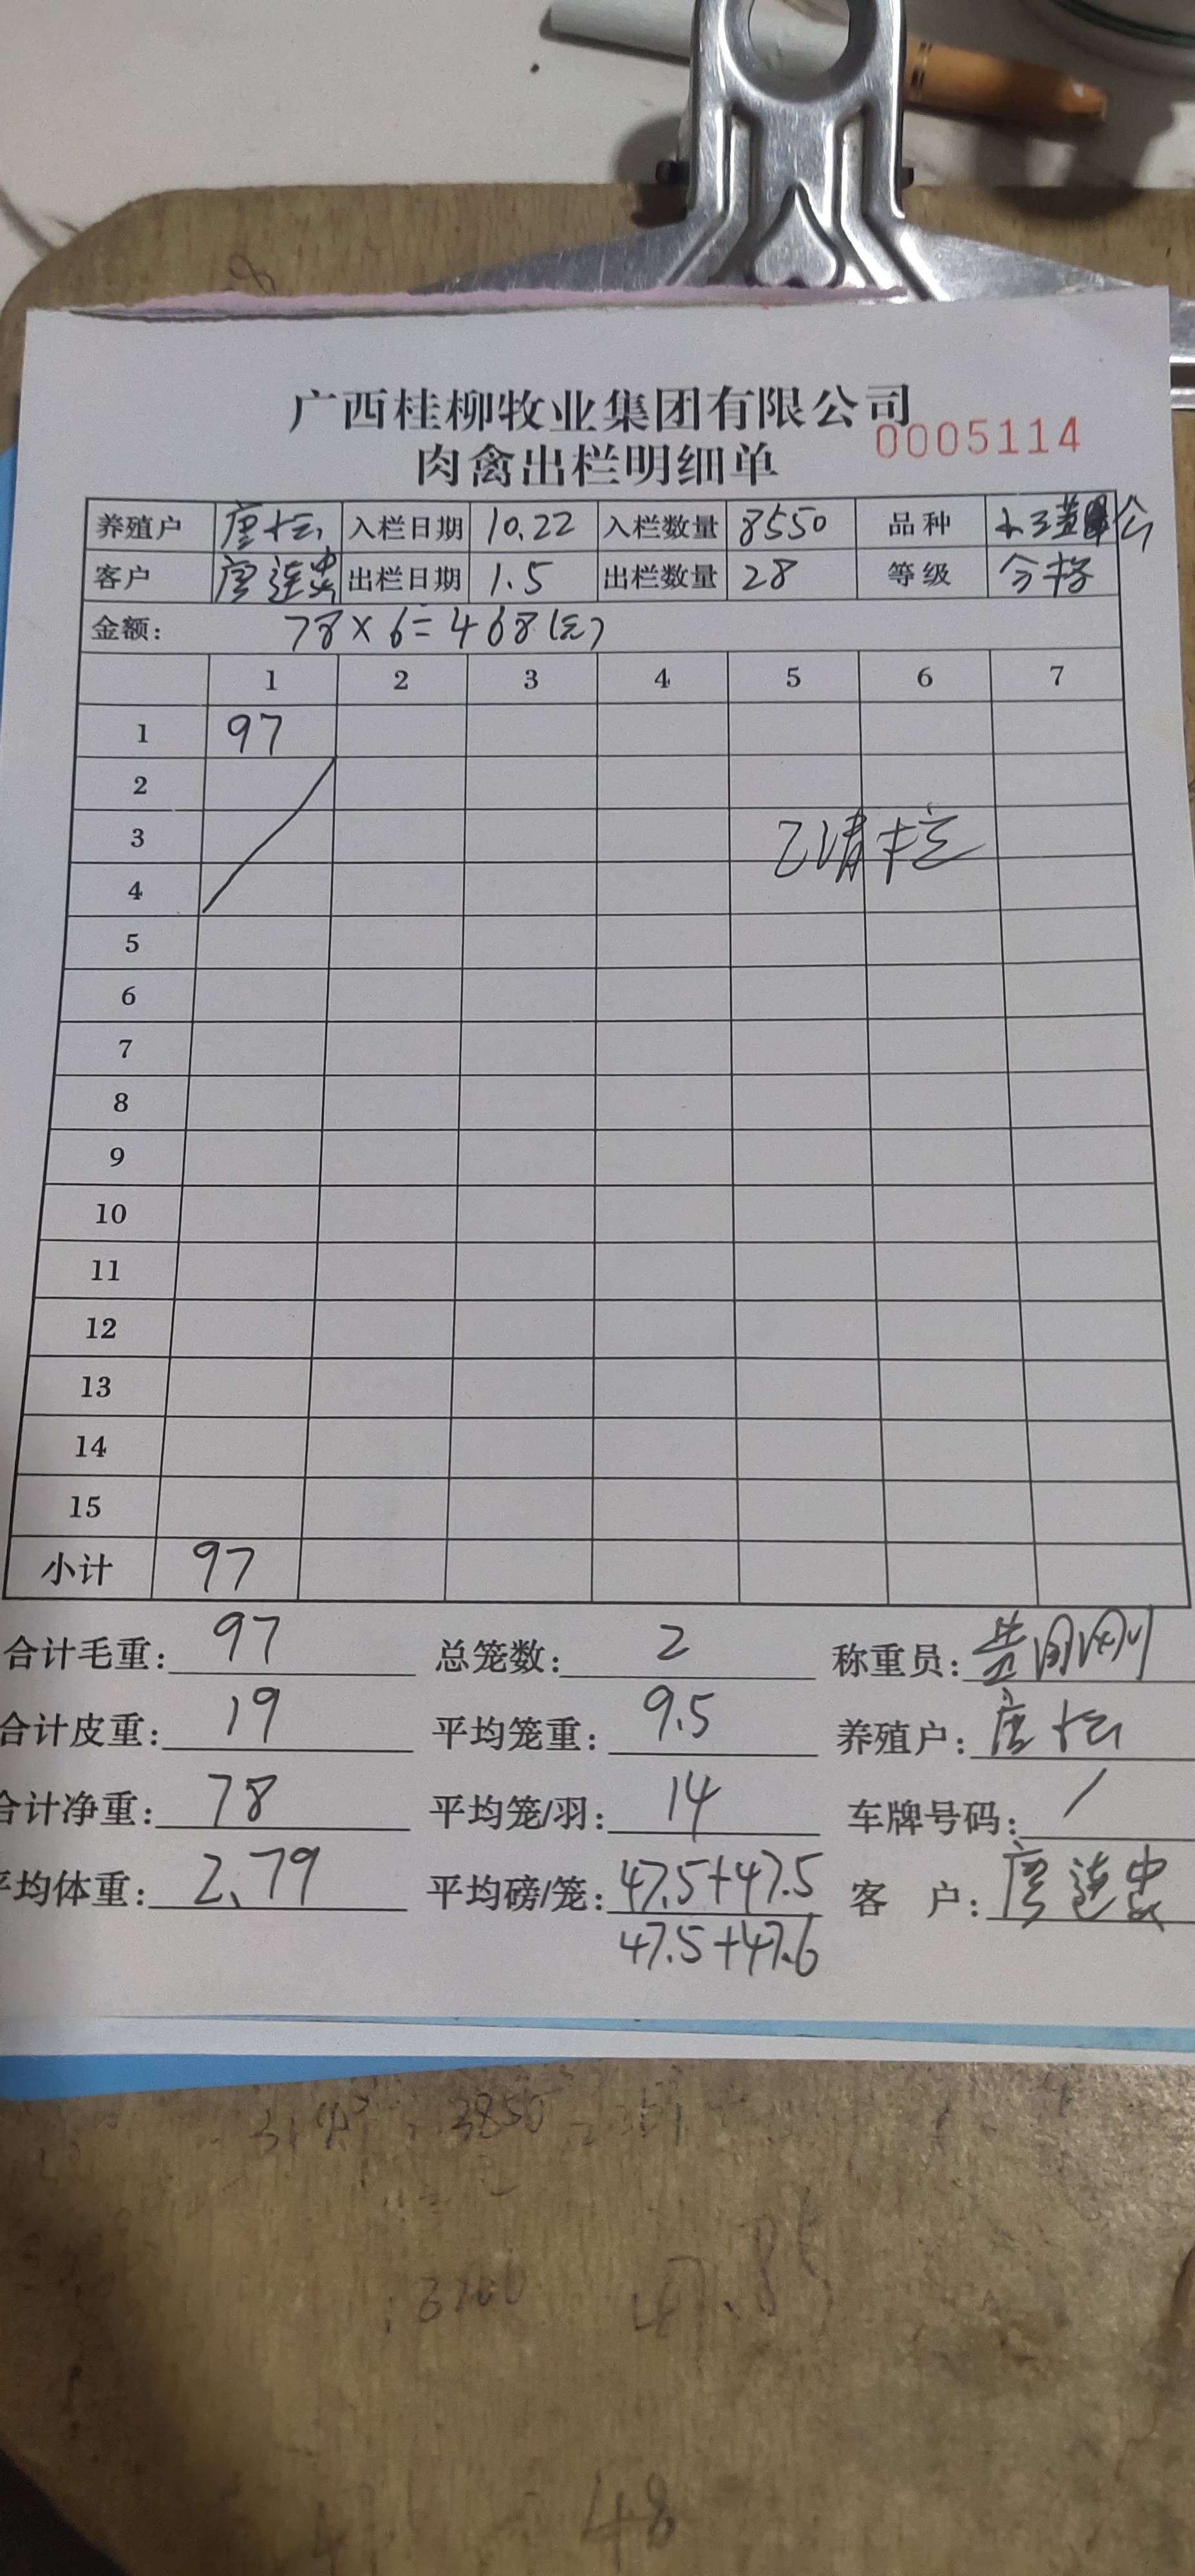 广西桂柳牧业集团有限公司
0005114
肉禽出栏明细单
养殖户 唐松 入栏日期 10.22 入栏数量 8550 品种 公
客户 唐连忠 出栏日期 1.5 出栏数量 28 等级
金额: 78×6=468(元)
1 2 3 4 5 6 7
1 97
2
3 已清栏
4
5
6
7
8
9
10
11
12
13
14
15
小计 97
合计毛重: 97 总笼数: 2 称重员:
合计皮重: 19 平均笼重: 9.5 养殖户: 唐松
合计净重: 78 平均笼/羽: 14 车牌号码: /
平均体重: 2.79 平均磅/笼: 47.5+47.5 客 户: 唐连忠
47.5+47.6
3850
48